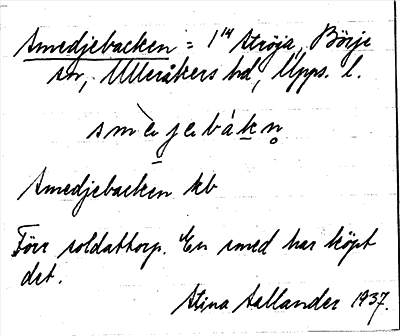 Smedjebacken = 1/4 Ströja, Börje
sn, Ulleråkers hd, Upps. l.
smè̱jebák̠n̥
Smedjebacken kb
Förr soldattorp. En smed har köpt
det.
Stina Sallander 1937.